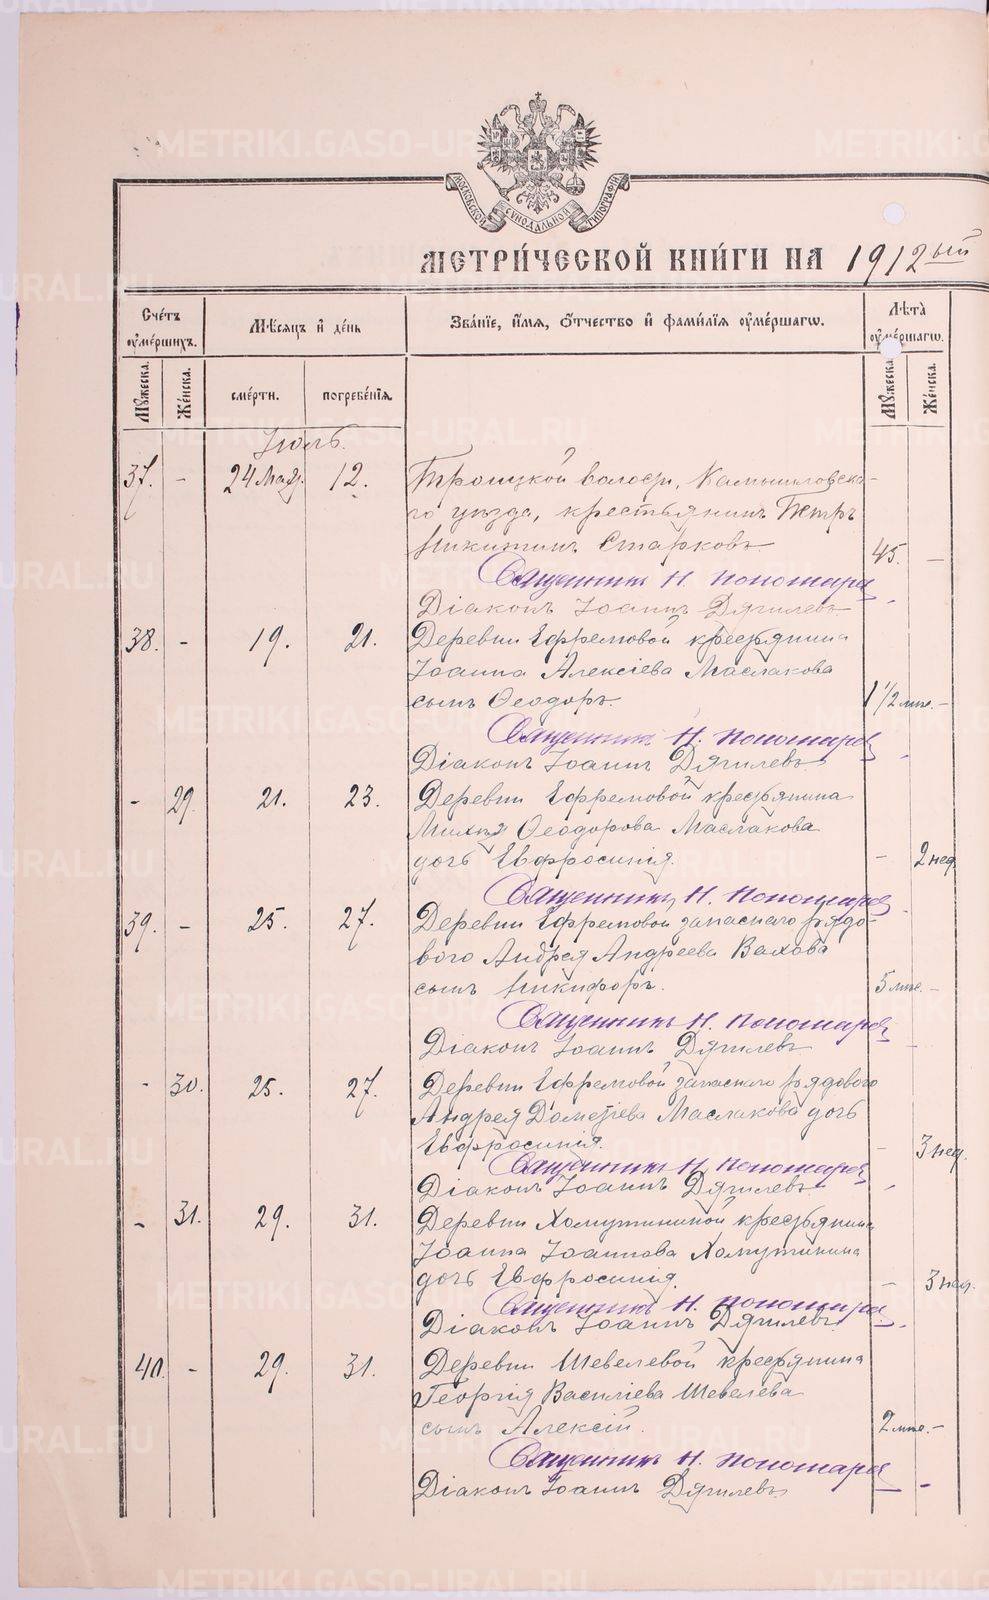 МОСКОВСКОЙ СѴНОДАЛЬНОЙ ТИПОГРАФІИ
МЕТРИ́ЧЕСКОЙ КНИ́ГИ НА 1912ый
Сче́тъ ᲂу҆ме́ршихъ.
Мѣ́сяцъ и҆ де́нь
Зва́нїе, и҆́мя, ѻ҆́тчество и҆ фами́лїя ᲂу҆ме́ршагѡ.
Лѣта̀ ᲂу҆ме́ршагѡ.
Мꙋ́жеска.
Же́нска.
сме́рти.
погребе́нїя.
Мꙋ́жеска.
Же́нска.
Іюль.
37. - 24 Мая. 12. Троицкой волости, Камышловска-
го уѣзда, крестьянинъ Петръ
Никитинъ Старковъ. 45. -
Священникъ Н. Пономарев
Діаконъ Іоаннъ Дягилевъ
38. - 19. 21. Деревни Ефремовой крестьянина
Іоанна Алексіева Маслакова
сынъ Ѳеодоръ. 1 1/2 мѣс. -
Священникъ Н. Пономарев
Діаконъ Іоаннъ Дягилевъ
- 29. 21. 23. Деревни Ефремовой крестьянина
Ѳеодорова Маслакова
дочь Евфросинія. - 2 нед.
Священникъ Н. Пономарев
39. - 25. 27. Деревни Ефремовой запаснаго рядо-
вого Андрея Андреева Вахова
сынъ Никифоръ. 5 мѣс. -
Священникъ Н. Пономарев
Діаконъ Іоаннъ Дягилевъ
- 30. 25. 27. Деревни Ефремовой запаснаго рядового
Андрея Дометіева Маслакова дочь
Евфросинія. - 3 нед.
Священникъ Н. Пономарев
Діаконъ Іоаннъ Дягилевъ
- 31. 29. 31. Деревни Хомутининой крестьянина
Іоанна Іоаннова Хомутинина
дочь Евфросинія. - 3 нед.
Священникъ Н. Пономарев
Діаконъ Іоаннъ Дягилевъ
40. - 29. 31. Деревни Шевелевой крестьянина
Георгія Василіева Шевелева
сынъ Алексій. 2 мѣс. -
Священникъ Н. Пономарев
Діаконъ Іоаннъ Дягилевъ
METRIKI.GASO-URAL.RU